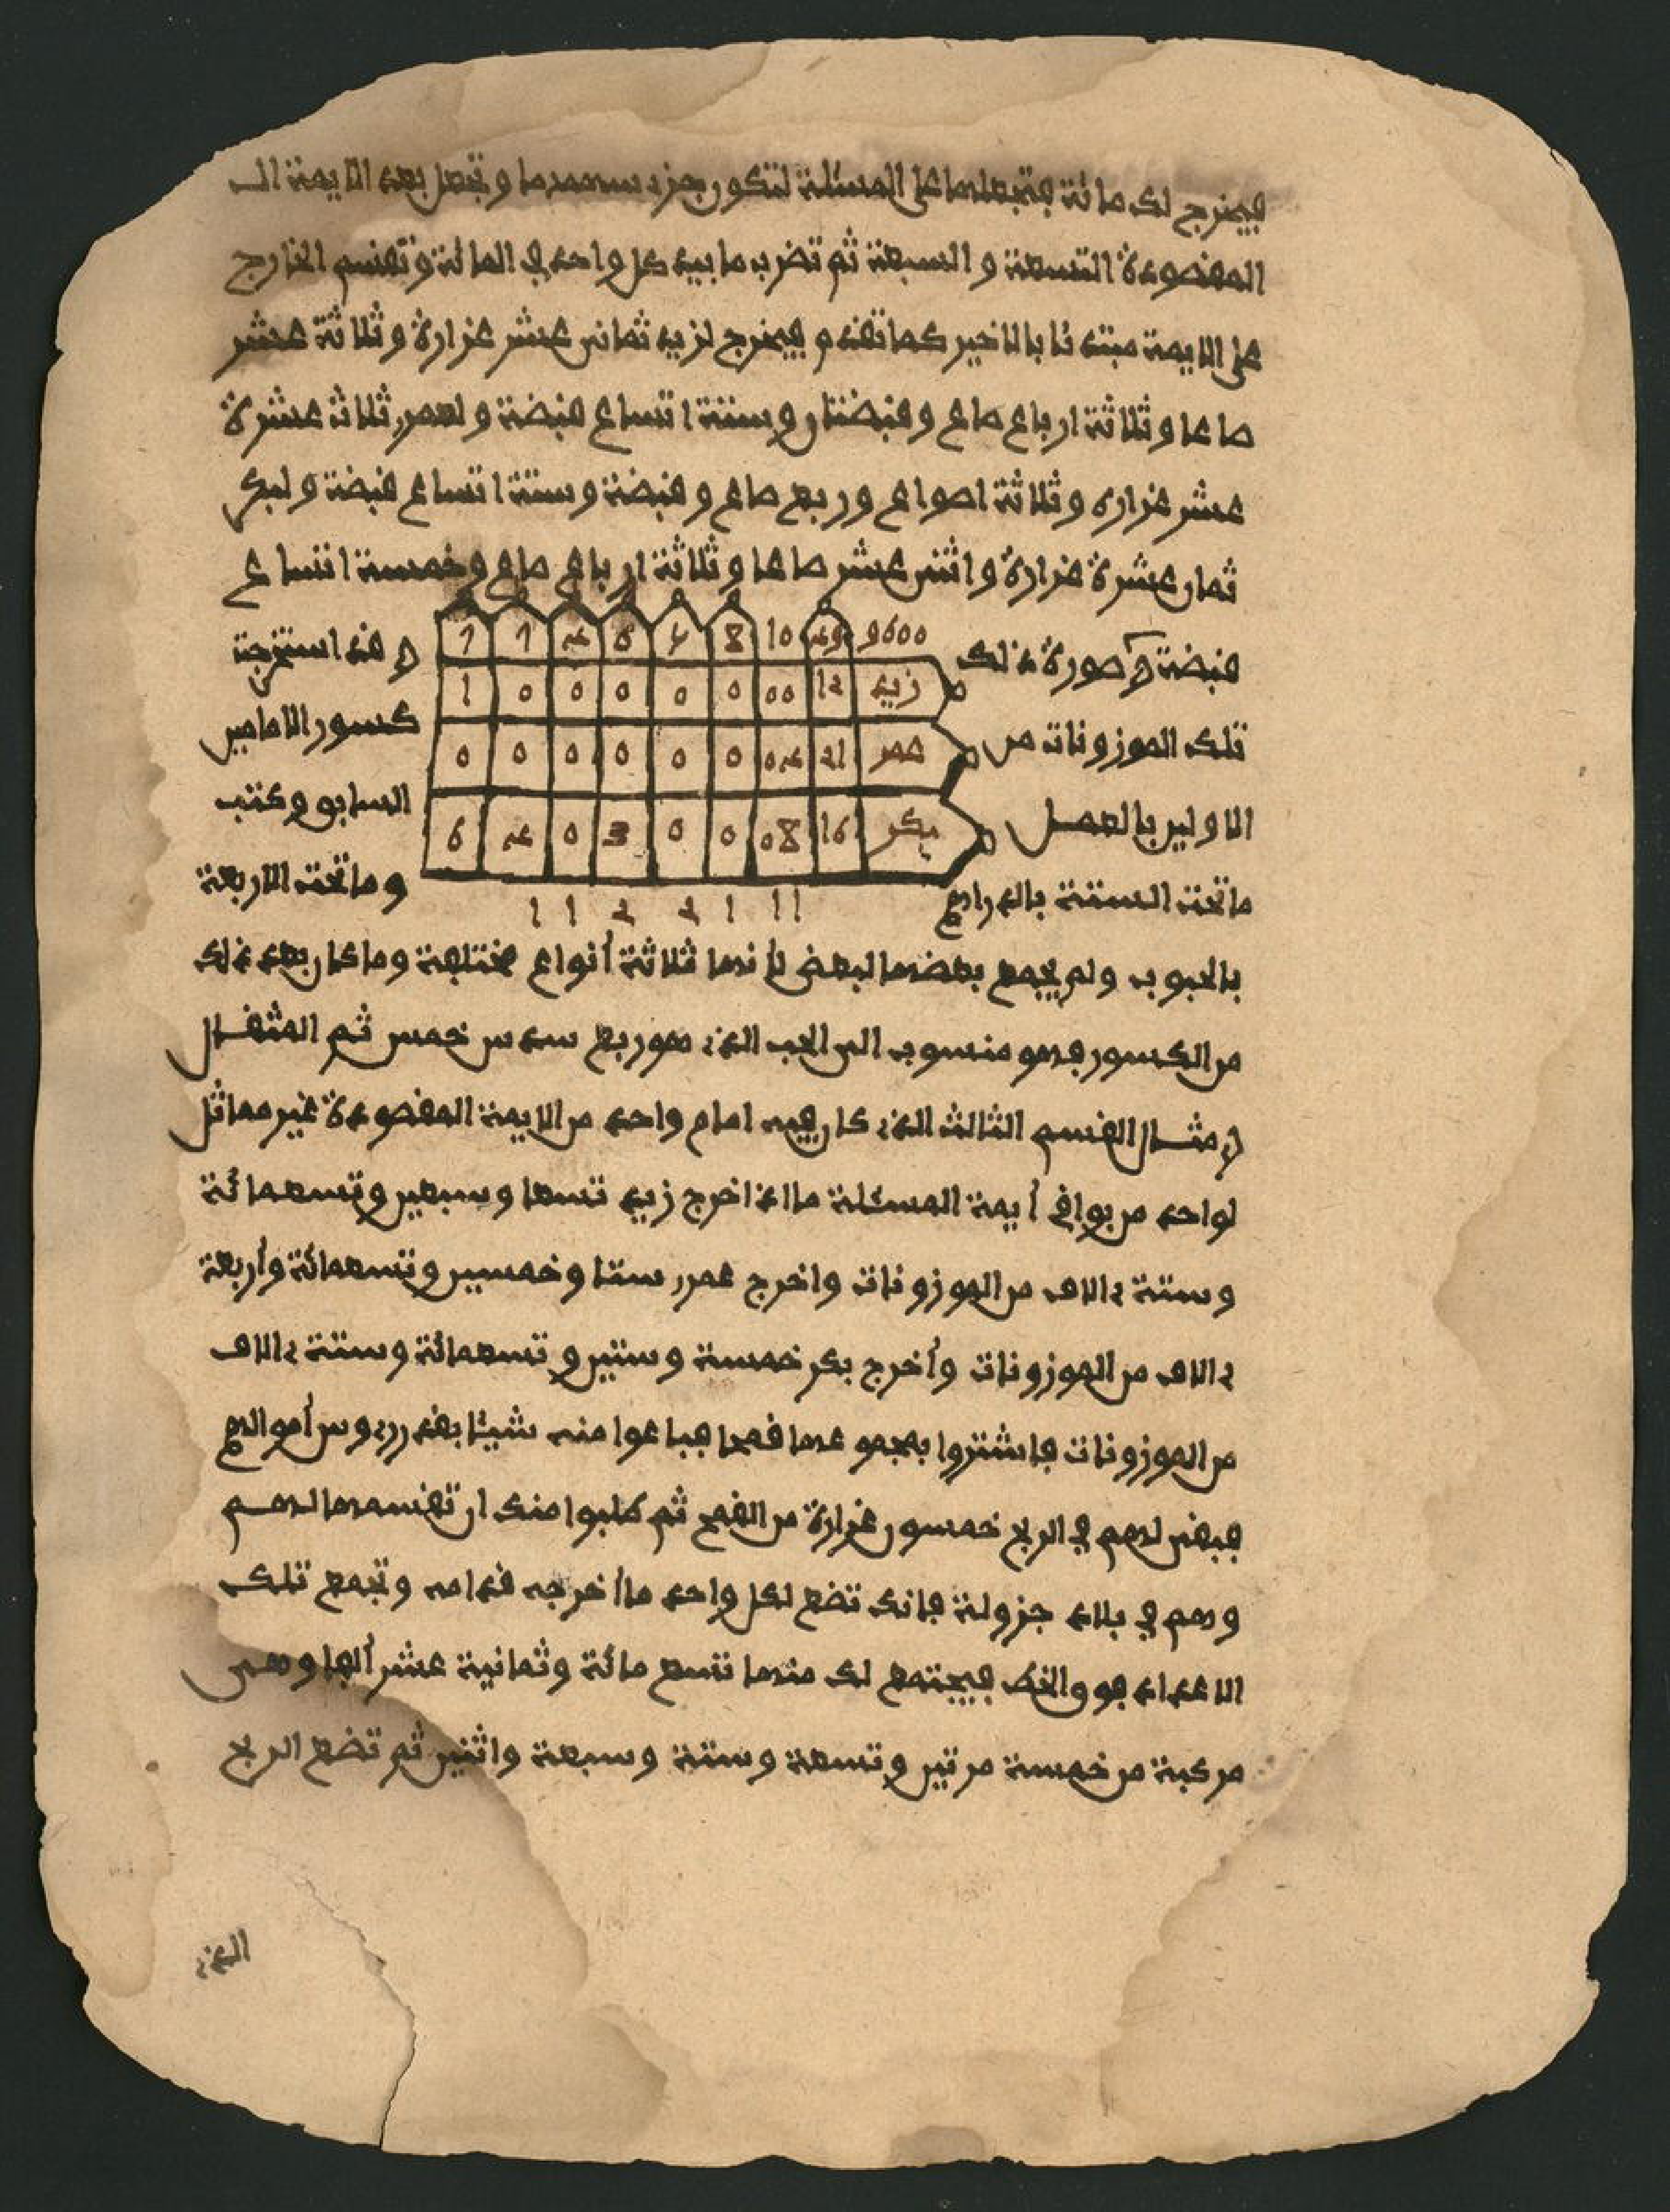 فيخرج لك مائة فتجعلها على المسئلة لتكون جزء سهمها وتجعل بعد الايمة الـ
المقصودة التسعة والسبعة ثم تضرب ما بيد كل واحد في المائة وتقسم الخارج
على الايمة مبتدئا بالاخير كما تقدم فيخرج لزيد ثماني عشر غرارة وثلاثة عشر
صاعا وثلاثة ارباع صاع وقبضتان وستة اتساع قبضة ولعمر ثلاث عشرة
عشر غرارة وثلاثة اصواع وربع صاع وقبضة وستة اتساع قبضة ولبكر
ثمان عشرة غرارة واثنى عشر صاعا وثلاثة ارباع صاع وخمسة اتساع
قبضة وصورة ذلك
9600
10
8
زيد
عمر
بكر
16
08
0
0
3
0
6
وقد استخرجت
تلك الموزونات من
كسور الامامين
الاولين بالعمل
السابق وكتب
ما تحت الستة بالدراهم
وما تحت الاربعة
بالحبوب ولم يجمع بعضها لبعض لأنها ثلاثة أنواع مختلفة وما كان بعد ذلك
من الكسور فهو منسوب الى الحب الذي هو ربع سدس خمس ثم المثقال
ومثال القسم الثالث الذي كان فيه امام واحد من الايمة المقصودة غير مماثل
لواحد من بواقي أيمة المسئلة ما اذا اخرج زيد تسعا وسبعين وتسعمائة
وستة ءالاف من الموزونات واخرج عمر ستا وخمسين وتسعمائة وأربعة
ءالاف من الموزونات وأخرج بكر خمسة وستين وتسعمائة وستة ءالاف
من الموزونات فاشتروا بمجموعها قمحا فباعوا منه شيئا بقدر رءوس أموالهم
فبقي لهم في الربح خمسون غرارة من القمح ثم طلبوا منك ان تقسمها لهم
وهم في بلاد جزولة فانك تضع لكل واحد ما أخرجه قدامه وتجمع تلك
الاعداد فوق الخط فيجتمع لك منها تسع مائة وثمانية عشر ألفا وهي
مركبة من خمسة مرتين وتسعة وستة وسبعة واثنين ثم تضع الربح
الذي